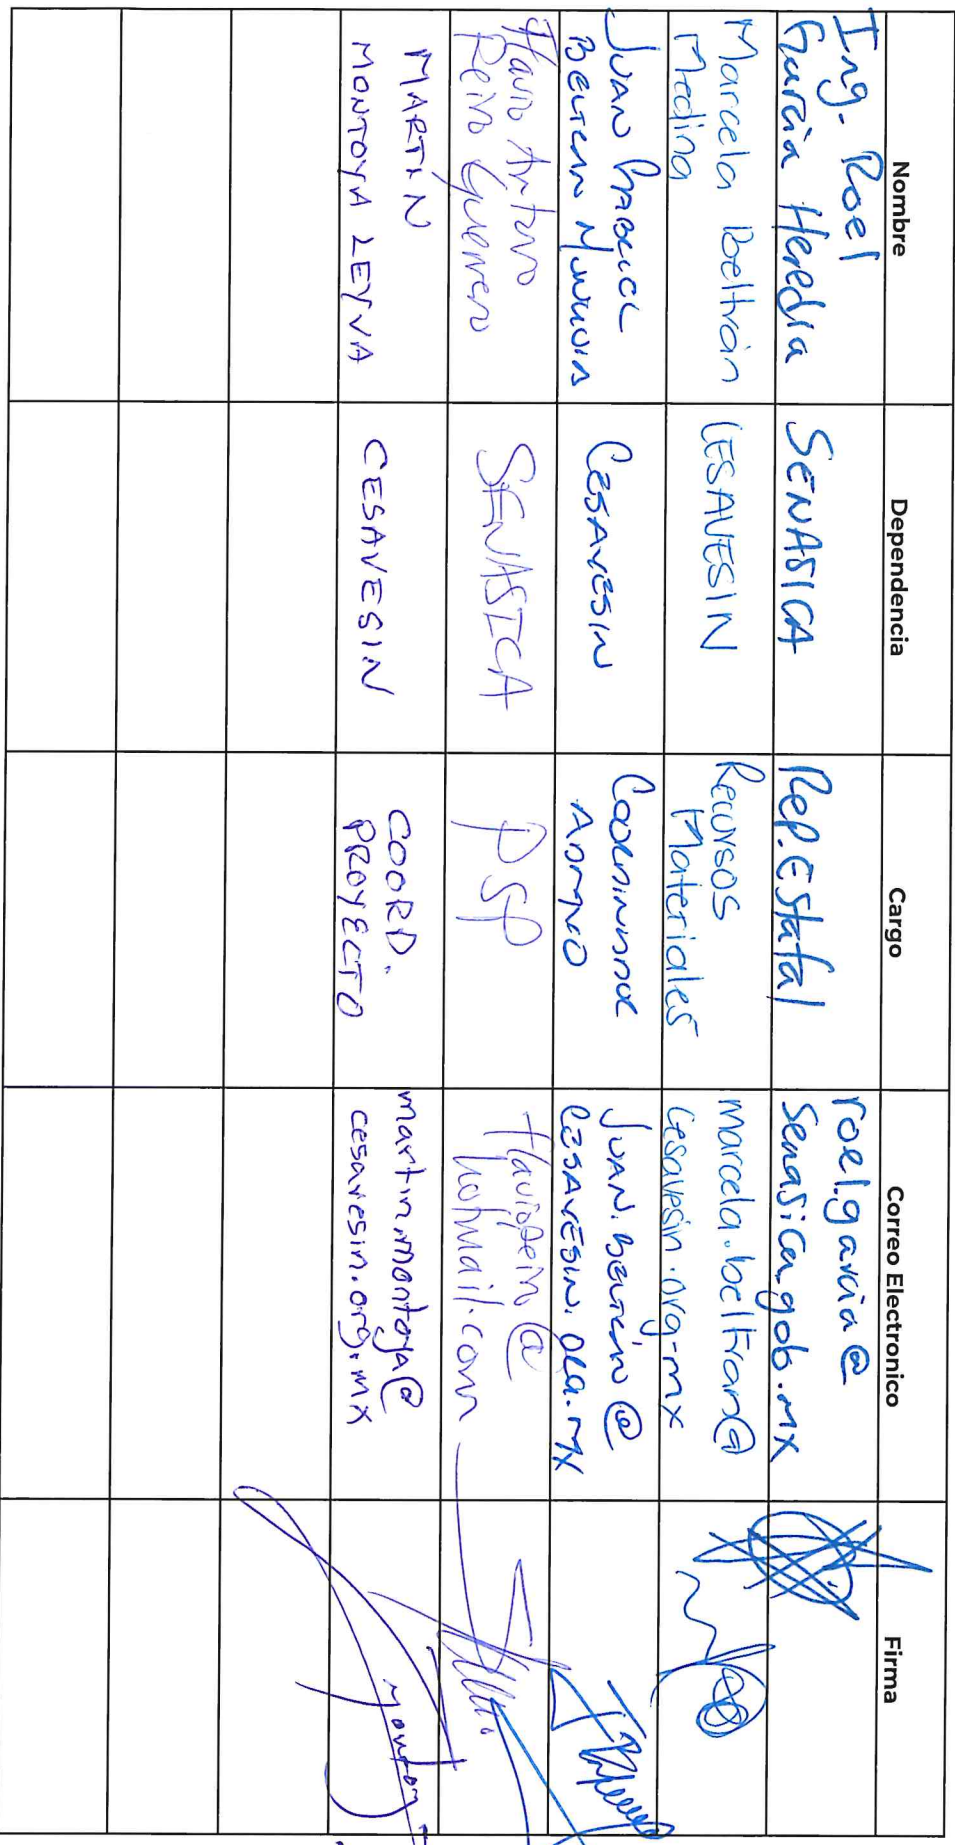 Nombre Dependencia Cargo Correo Electronico Firma
Ing. Roel
García Heredia
SENASICA
Rep. Estatal
roel.garcia@
senasica.gob.mx
Marcela Beltrán
Medina
CESAVESIN
Recursos
Materiales
marcela.beltran@
cesavesin.org.mx
JUAN GABRIEL
BELTRAN
CESAVESIN
COORDINADOR
ADMVO
JUAN.BELTRAN@
CESAVESIN.ORG.MX
Flavio Antonio
SENASICA
PSP
@
hotmail.com
MARTIN
MONTOYA LEYVA
CESAVESIN
COORD.
PROYECTO
martin.montoya@
cesavesin.org.mx